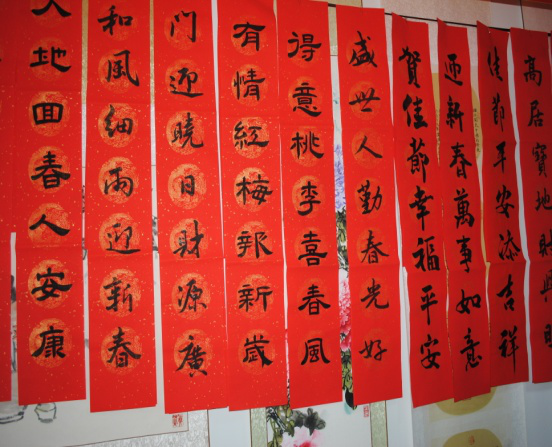 高居寶地財興旺
佳節平安添吉祥
迎新春萬事如意
賀佳節幸福平安
盛世人勤春光好
得意桃李喜春風
有情紅梅報新歲
門迎曉日財源廣
和風細雨迎新春
大地回春人安康